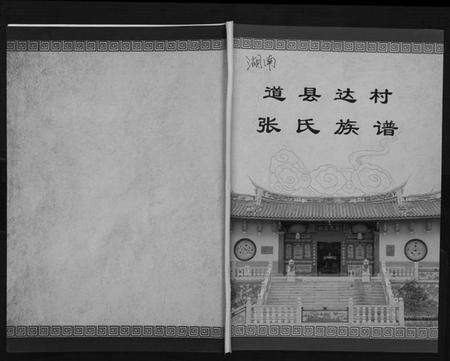 湖南
道县达村
张氏族谱